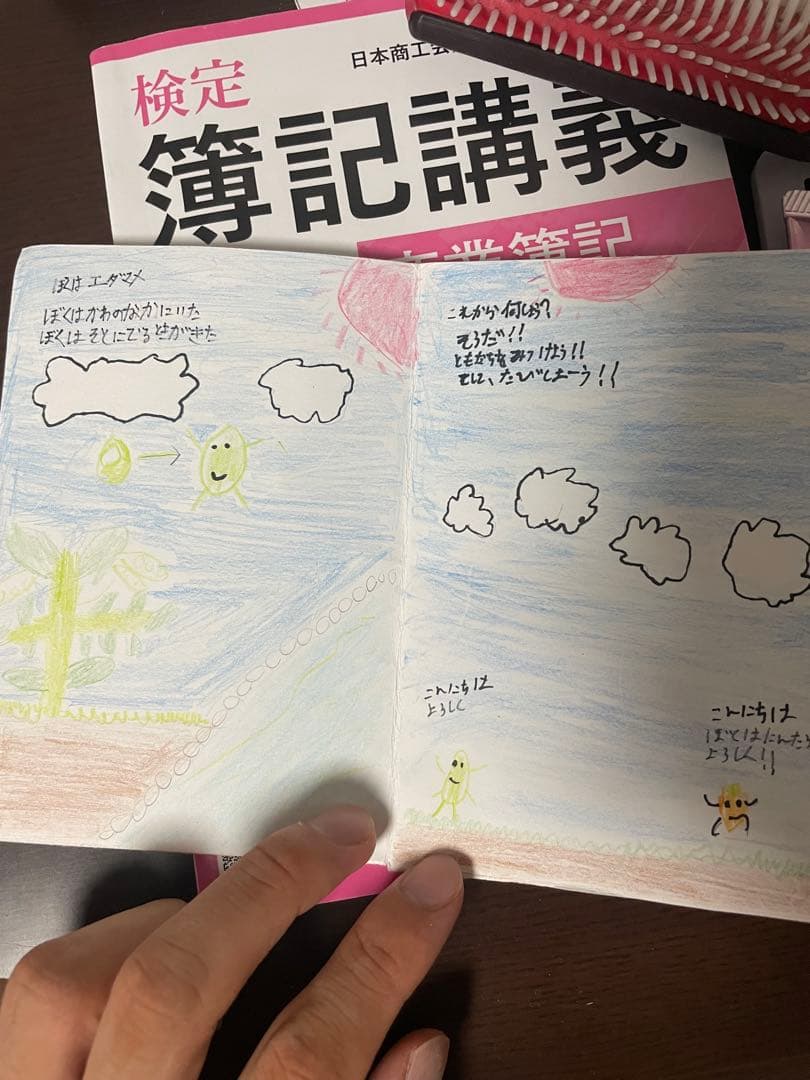 日本商工会
検定
簿記講義
業簿記
ぼくはエダマメ
ぼくはかわのなかにいた
ぼくはそとにでるときがきた
これから何しよう?
そうだ!!
ともだちをみつけよう!!
そして、たびしよーう!!
こんにちは
よろしく
こんにちは
ぼくはにんた
よろしく!!